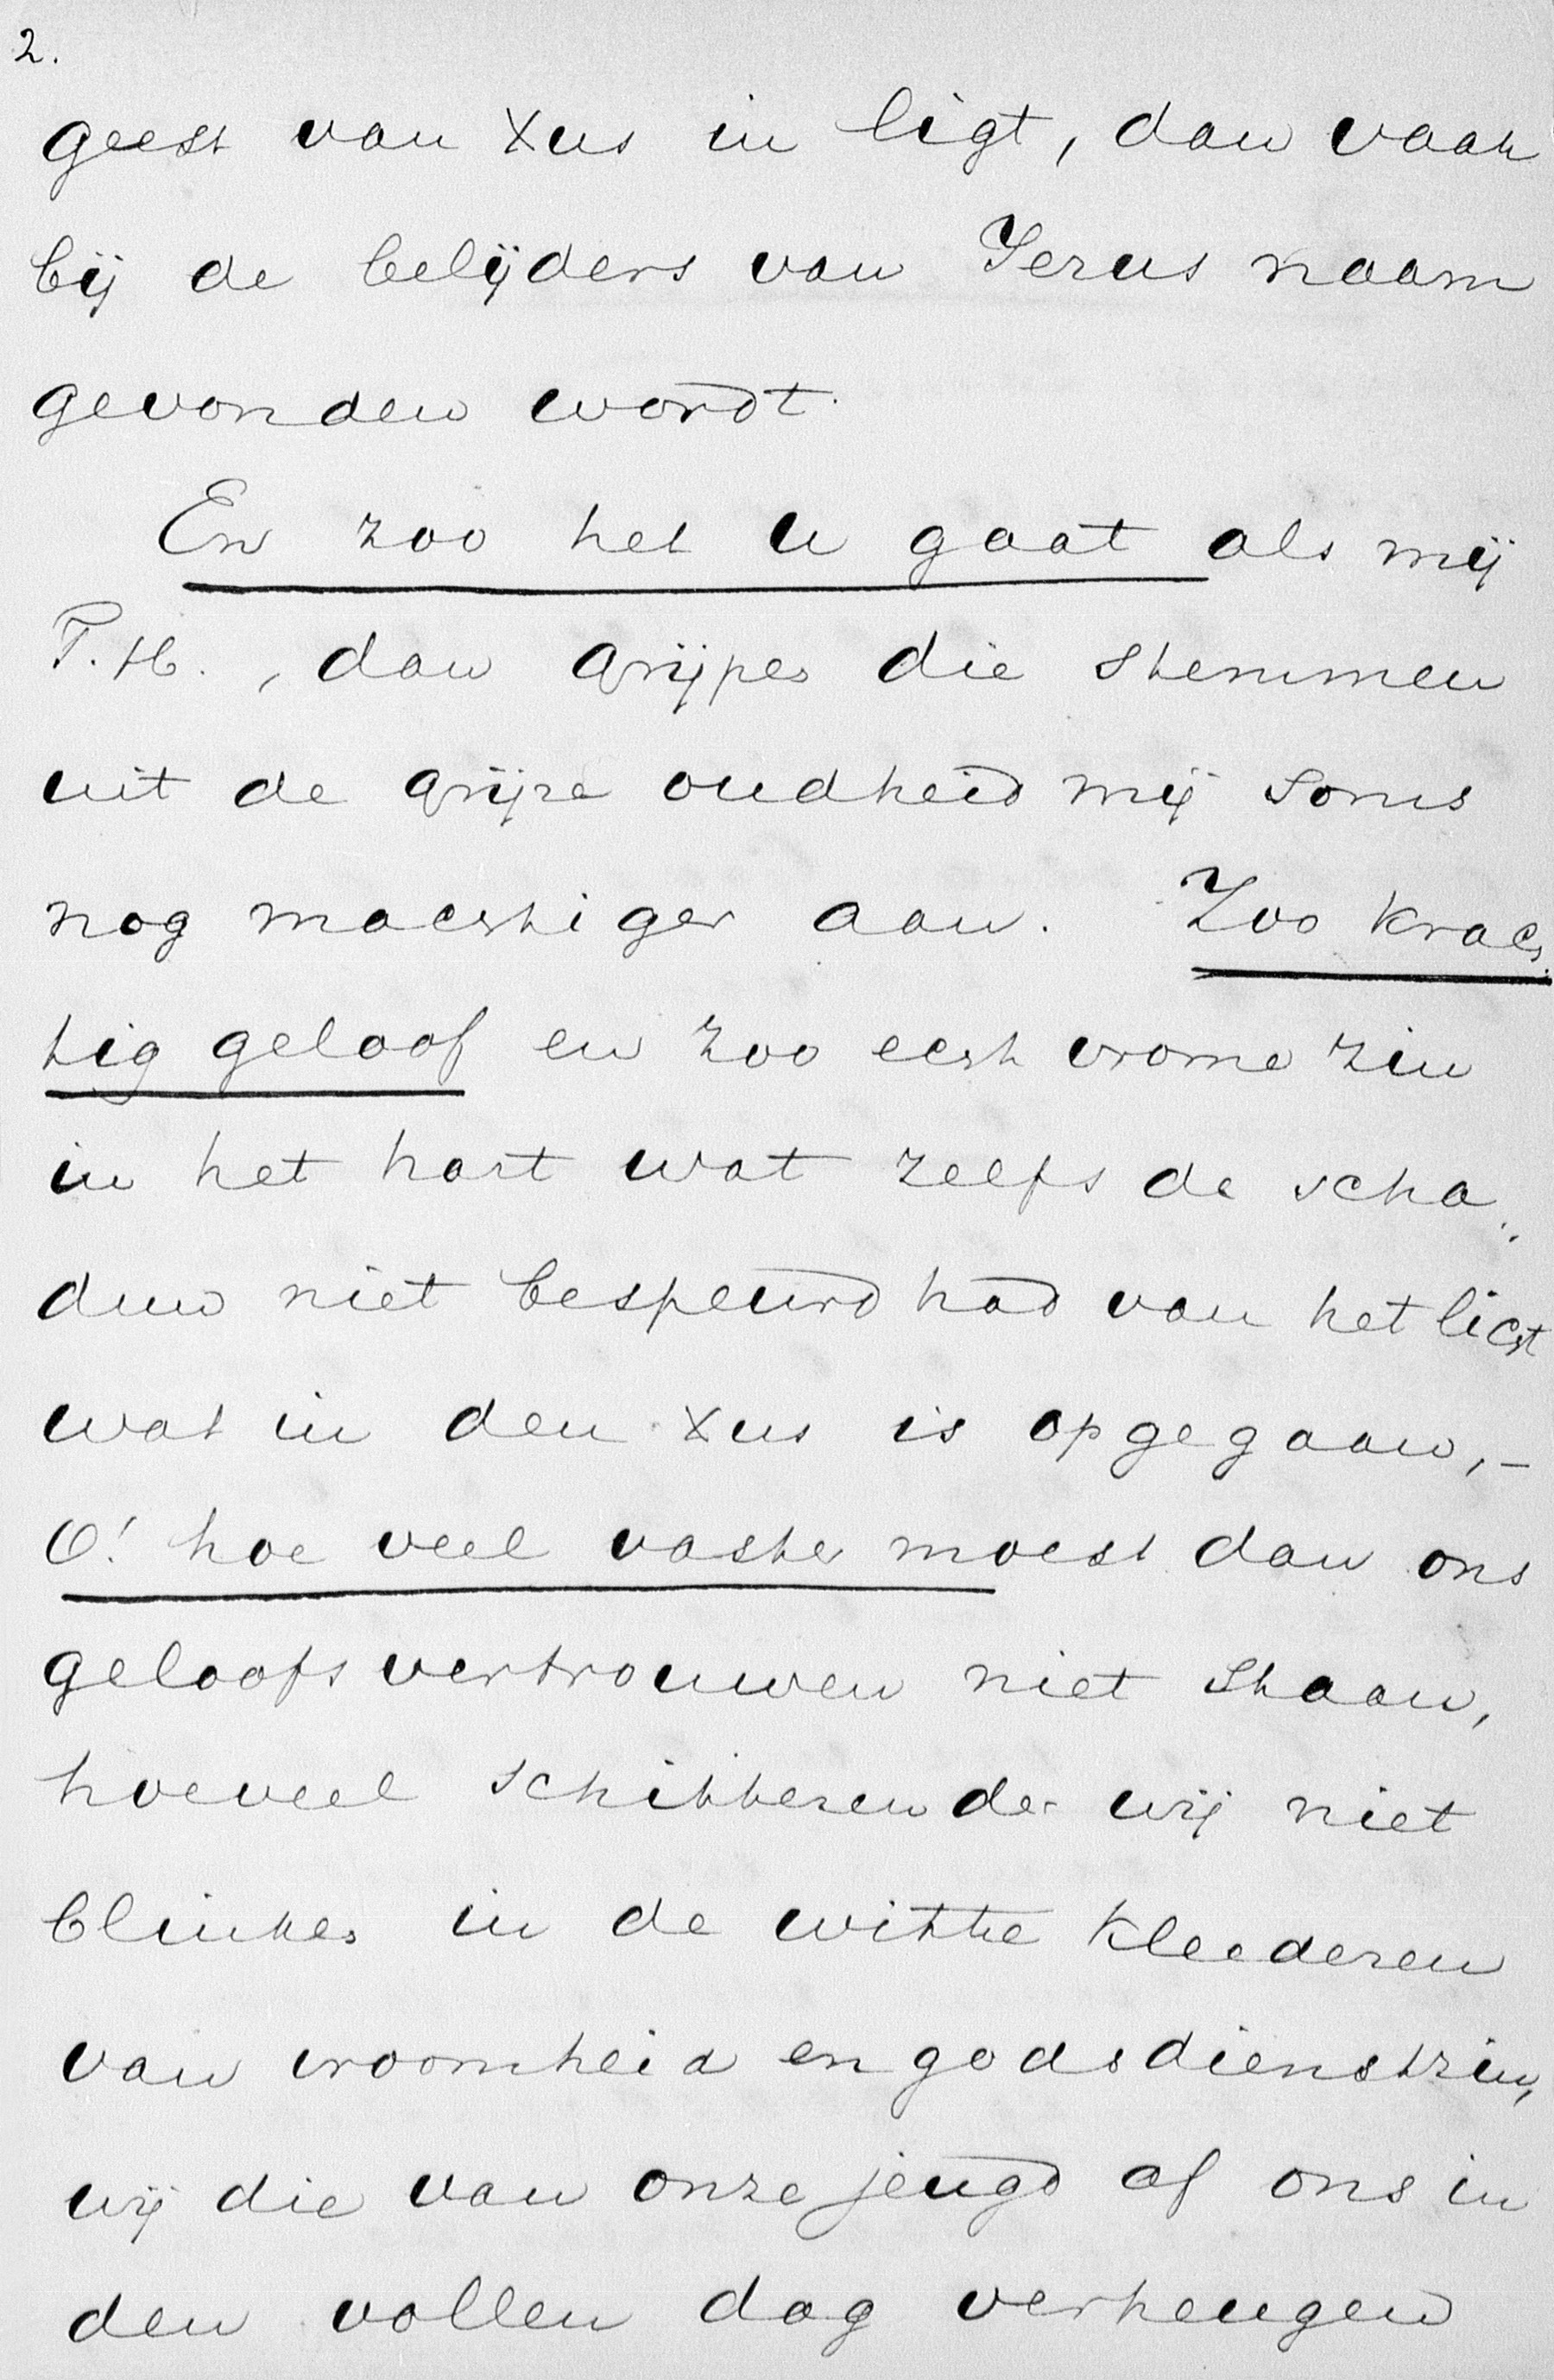 2.
geest van Xus in ligt, dan vaak
bij de belijders van Jezus naam
gevonden wordt.
En zoo het u gaat als mij
T. H., dan grijpen die stemmen
uit de grijze oudheid mij soms
nog machtiger aan. Zoo krach
tig geloof en zoo echt vrome zin
in het hart wat zelfs de scha
duw niet bespeurd had van het licht
wat in den Xus is opgegaan, –
O! hoe veel vaster moest dan ons
geloofsvertrouwen niet staan,
hoeveel schitterender wij niet
blinken in de witte kleederen
van vroomheid en godsdienstzin,
wij die van onze jeugd af ons in
den vollen dag verheugen